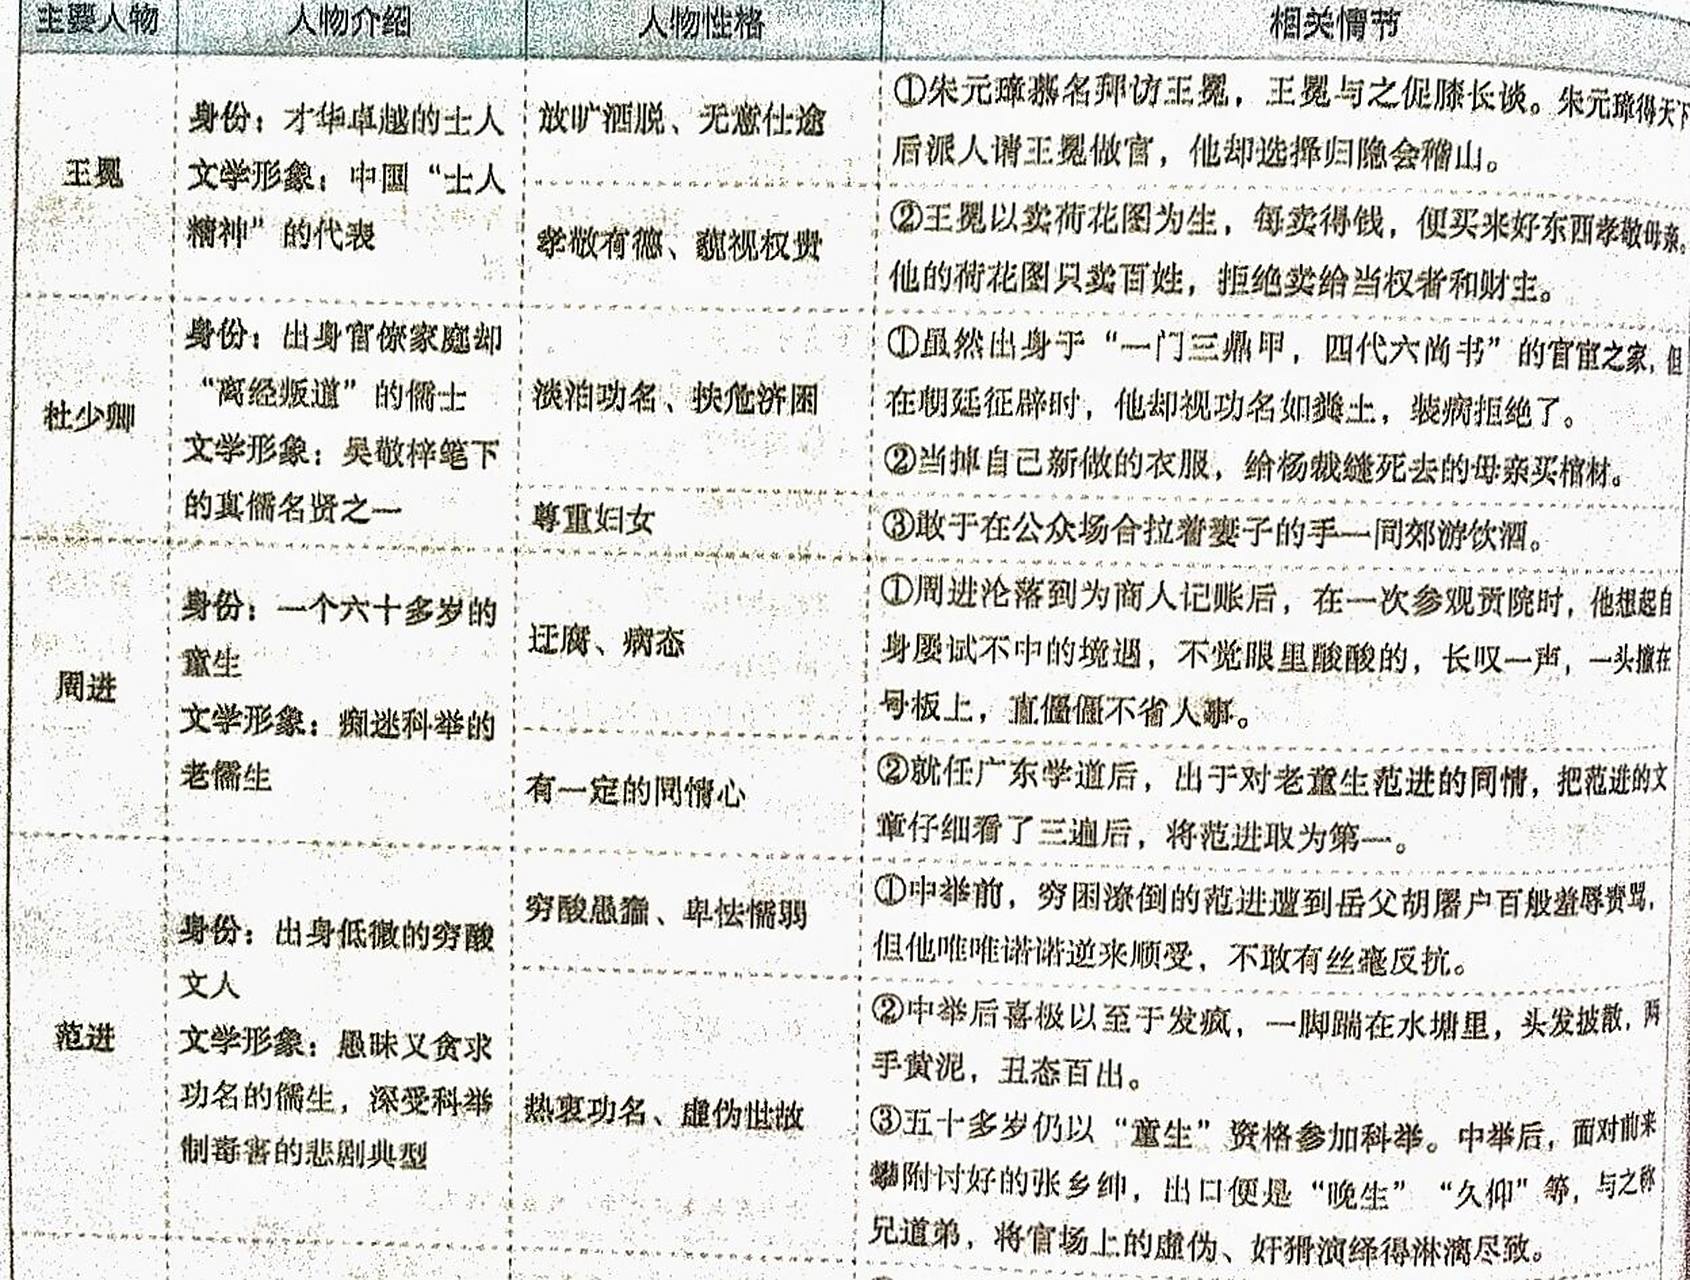 主要人物 人物介绍 人物性格 相关情节
王冕
身份：才华卓越的士人
文学形象：中国“士人
精神”的代表
放旷洒脱、无意仕途
①朱元璋慕名拜访王冕，王冕与之促膝长谈。朱元璋得天下
后派人请王冕做官，他却选择归隐会稽山。
孝敬有德、藐视权贵
②王冕以卖荷花图为生，每卖得钱，便买来好东西孝敬母亲。
他的荷花图只卖百姓，拒绝卖给当权者和财主。
杜少卿
身份：出身官僚家庭却
“离经叛道”的儒士
文学形象：吴敬梓笔下
的真儒名贤之一
淡泊功名、扶危济困
①虽然出身于“一门三鼎甲，四代六尚书”的官宦之家，但
在朝廷征辟时，他却视功名如粪土，装病拒绝了。
②当掉自己新做的衣服，给杨裁缝死去的母亲买棺材。
尊重妇女
③敢于在公众场合拉着妻子的手一同郊游饮酒。
周进
身份：一个六十多岁的
童生
文学形象：痴迷科举的
老儒生
迂腐、病态
①周进沦落到为商人记账后，在一次参观贡院时，他想起自
身屡试不中的境遇，不觉眼里酸酸的，长叹一声，一头撞在
号板上，直僵僵不省人事。
有一定的同情心
②就任广东学道后，出于对老童生范进的同情，把范进的文
章仔细看了三遍后，将范进取为第一。
范进
身份：出身低微的穷酸
文人
文学形象：愚昧又贪求
功名的儒生，深受科举
制毒害的悲剧典型
穷酸愚猫、卑怯懦弱
①中举前，穷困潦倒的范进遭到岳父胡屠户百般羞辱责骂，
但他唯唯诺诺逆来顺受，不敢有丝毫反抗。
热衷功名、虚伪世故
②中举后喜极以至于发疯，一脚踹在水塘里，头发披散，两
手黄泥，丑态百出。
③五十多岁仍以“童生”资格参加科举。中举后，面对前来
攀附讨好的张乡绅，出口便是“晚生”“久仰”等，与之称
兄道弟，将官场上的虚伪、奸猾演绎得淋漓尽致。